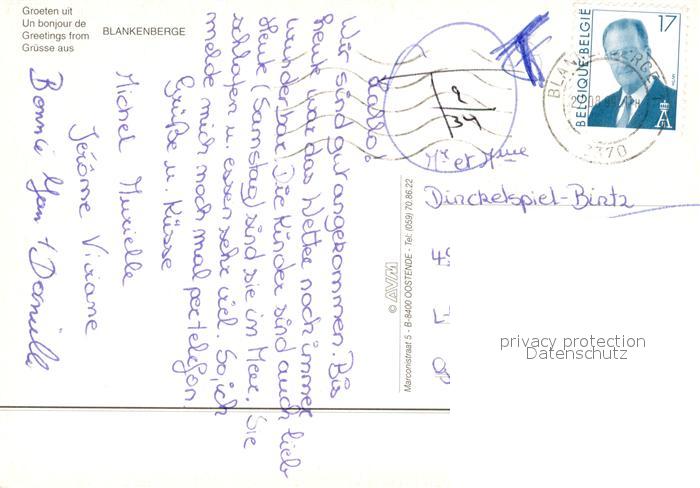 Groeten uit
Un bonjour de
Greetings from
Grüsse aus
BLANKENBERGE
Hallo!
Wir sind gut angekommen. Bis
heute war das Wetter noch immer
wunderbar. Die Kinder sind auch lieb
Heute (Samstag) sind sie im Meer. Sie
schlafen u. essen sehr viel. So, ich
melde mich noch mal per telefon.
Grüße u. Küsse
Michel Murielle
Jérôme Viviane
© AVM
Marconistraat 5 - B-8400 OOSTENDE - Tel: (059) 70.86.22
T
9
34
BELGIQUE·BELGIË
17
BLANKENBERGE
Mr et Mme
Dinckelspiel-Bintz
privacy protection
Datenschutz